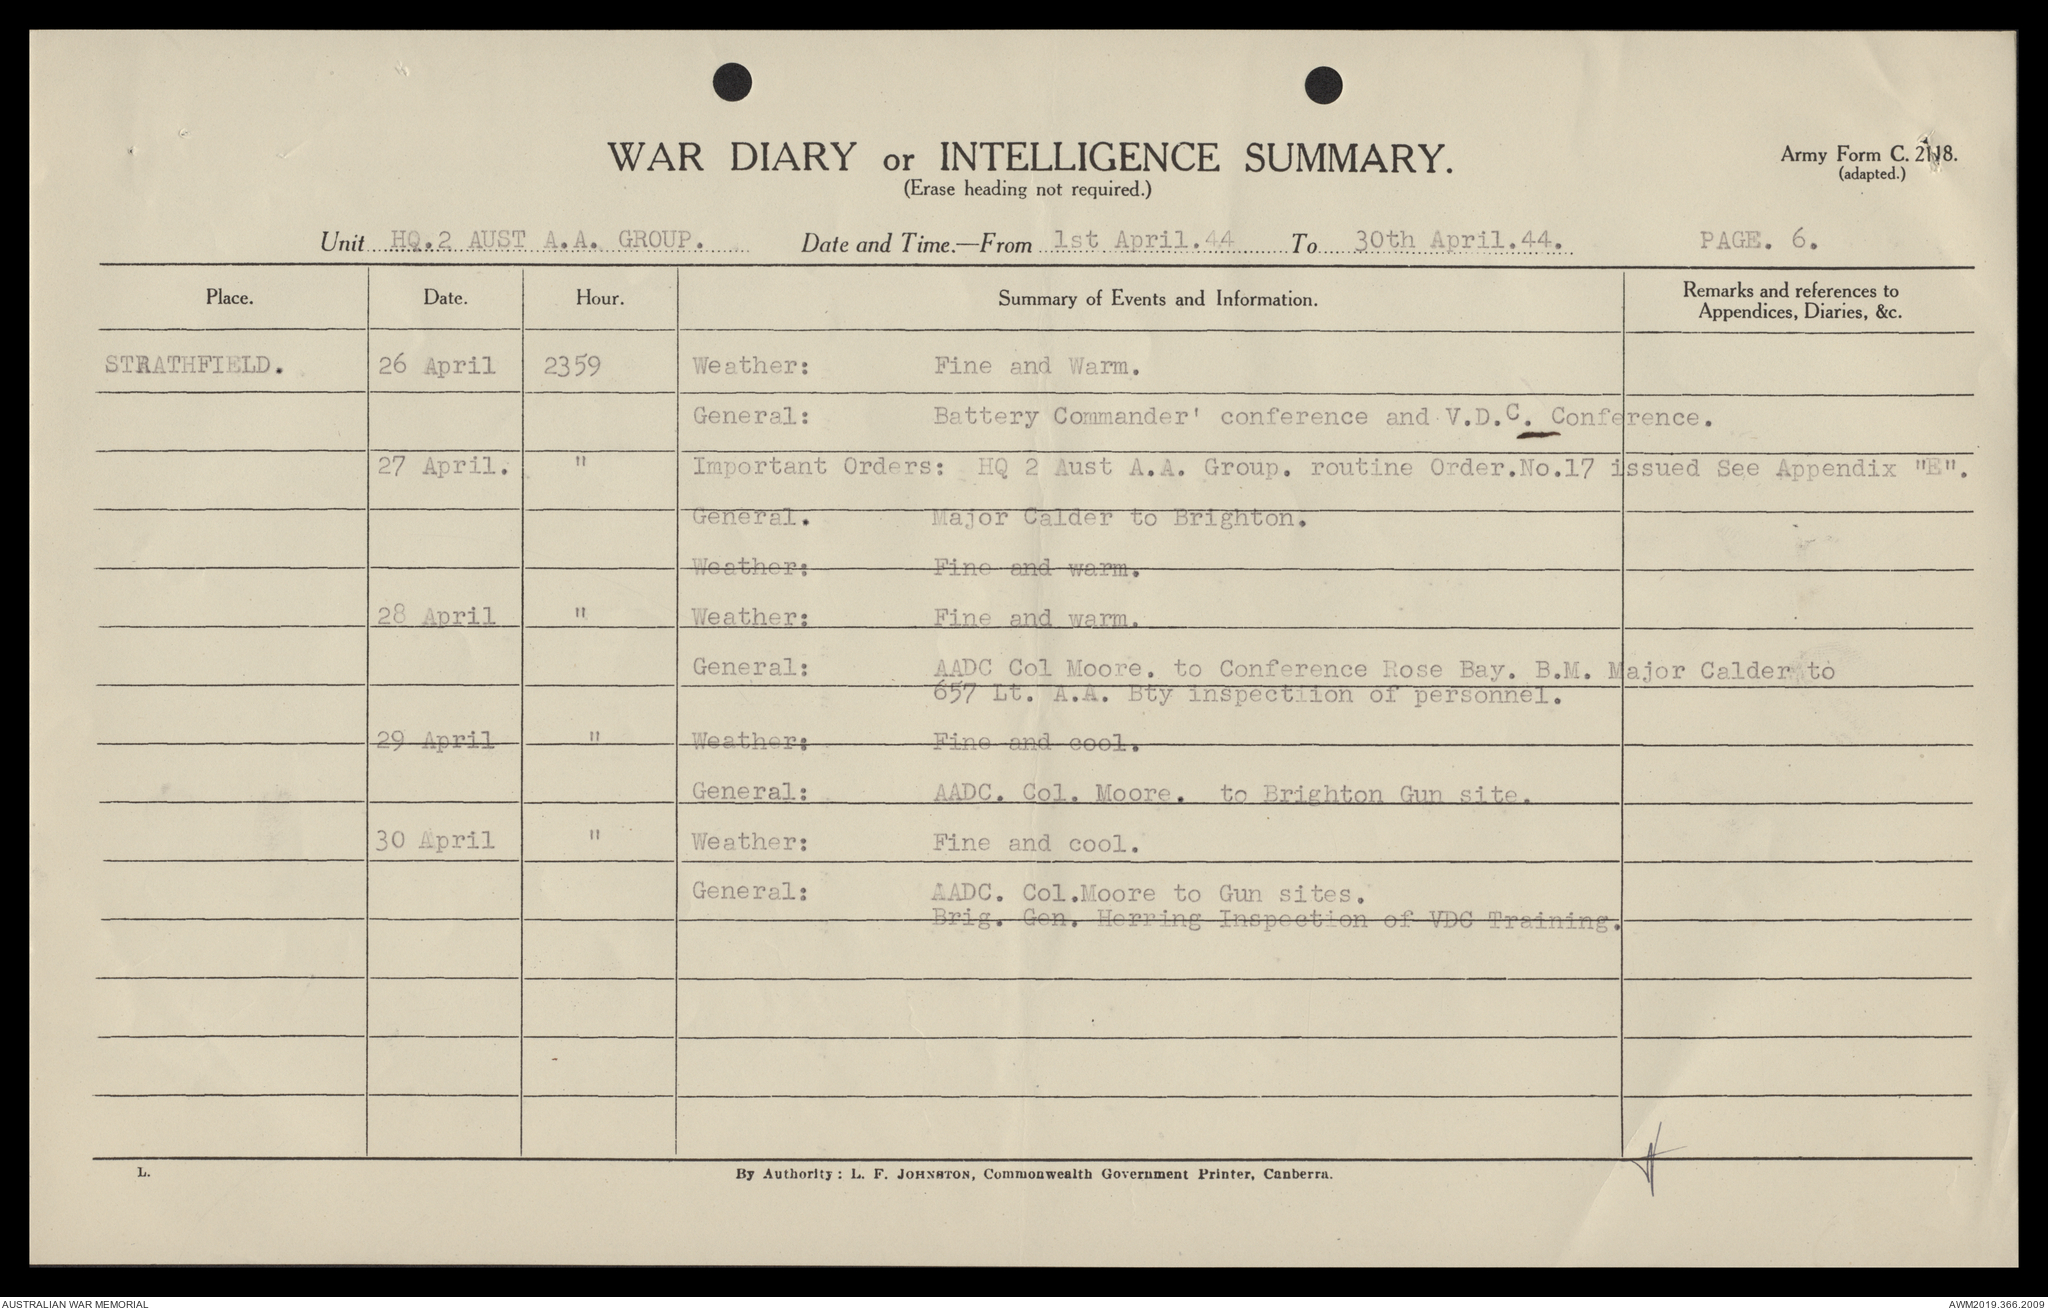 WAR DIARY or INTELLIGENCE SUMMARY.
(Erase heading not required.)
Army Form C. 2118.
(adapted.)
Unit HQ.2 AUST A.A. GROUP. Date and Time.—From 1st April.44 To 30th April.44. PAGE. 6.
Place. Date. Hour. Summary of Events and Information. Remarks and references to Appendices, Diaries, &c.
STRATHFIELD. 26 April 2359 Weather: Fine and Warm.
General: Battery Commander' conference and V.D.C. Conference.
27 April. " Important Orders: HQ 2 Aust A.A. Group. routine Order.No.17 issued See Appendix "E".
General. Major Calder to Brighton.
Weather: Fine and warm.
28 April " Weather: Fine and warm.
General: AADC Col Moore. to Conference Rose Bay. B.M. Major Calder to
657 Lt. A.A. Bty inspectiion of personnel.
29 April " Weather: Fine and cool.
General: AADC. Col. Moore. to Brighton Gun site.
30 April " Weather: Fine and cool.
General: AADC. Col.Moore to Gun sites.
Brig. Gen. Herring Inspection of VDC Training.
L. By Authority: L. F. JOHNSTON, Commonwealth Government Printer, Canberra.
AUSTRALIAN WAR MEMORIAL AWM2019.366.2009